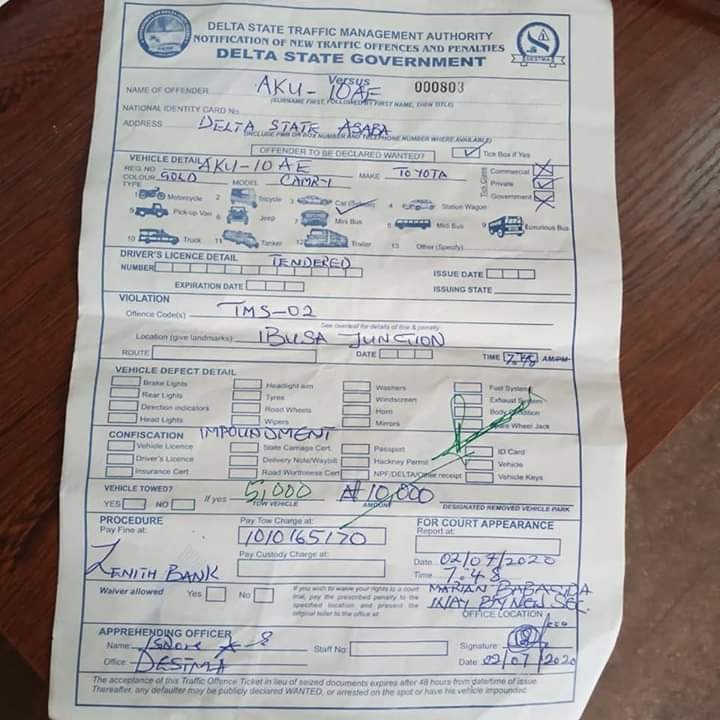 DELTA STATE TRAFFIC MANAGEMENT AUTHORITY
NOTIFICATION OF NEW TRAFFIC OFFENCES AND PENALTIES
DELTA STATE GOVERNMENT
DESTMA
Versus
000803
NAME OF OFFENDER AKU-10AE
(SURNAME FIRST, FOLLOWED BY FIRST NAME, THEN TITLE)
NATIONAL IDENTITY CARD No
ADDRESS DELTA STATE ASABA
(INCLUDE PMB OR BOX NUMBER AND TELEPHONE NUMBER WHERE AVAILABLE)
OFFENDER TO BE DECLARED WANTED? Tick Box if Yes
VEHICLE DETAIL
REG. NO AKU-10 AE
COLOUR GOLD MODEL CAMRY MAKE TOYOTA
Tick Class Commercial
Private
Government
TYPE
1 Motorcycle 2 Tricycle 3 Car (Saloon) 4 Station Wagon
5 Pick-up Van 6 Jeep 7 Mini Bus 8 Midi Bus 9 Luxurious Bus
10 Truck 11 Tanker 12 Trailer 13 Other (Specify)
DRIVER'S LICENCE DETAIL TENDERED
NUMBER ISSUE DATE
EXPIRATION DATE ISSUING STATE
VIOLATION
Offence Code(s) TMS-02
See overleaf for details of fine & penalty
Location (give landmarks) IBUSA JUNCTION
ROUTE DATE TIME 7:48 AM/PM
VEHICLE DEFECT DETAIL
Brake Lights Headlight aim Washers Fuel System
Rear Lights Tyres Windscreen Exhaust System
Direction indicators Road Wheels Horn Body Condition
Head Lights Wipers Mirrors Wheel Jack
CONFISCATION IMPOUNDMENT
Vehicle Licence State Carriage Cert. Passport ID Card
Driver's Licence Delivery Note/Waybill Hackney Permit Vehicle
Insurance Cert. Road Worthiness Cert NPF/DELTA/ receipt Vehicle Keys
VEHICLE TOWED?
YES NO If yes 5,000 ₦10,000
TOW VEHICLE AMOUNT DESIGNATED REMOVED VEHICLE PARK
PROCEDURE
Pay Fine at:
ZENITH BANK
Pay Tow Charge at:
1010165170
Pay Custody Charge at:
FOR COURT APPEARANCE
Report at:
Date 02/07/2020
Time 7:48
MARIAN BABANGIDA
OFFICE LOCATION
Waiver allowed Yes No
If you wish to waive your rights to a court
trial, pay the prescribed penalty to the
specified location and present the
original teller to the office at
APPREHENDING OFFICER
Name: Staff No: Signature:
Office: DESTMA Date: 02/07/2020
The acceptance of this Traffic Offence Ticket in lieu of seized documents expires after 48 hours from date/time of issue
Thereafter, any defaulter may be publicly declared WANTED, or arrested on the spot or have his vehicle impounded.